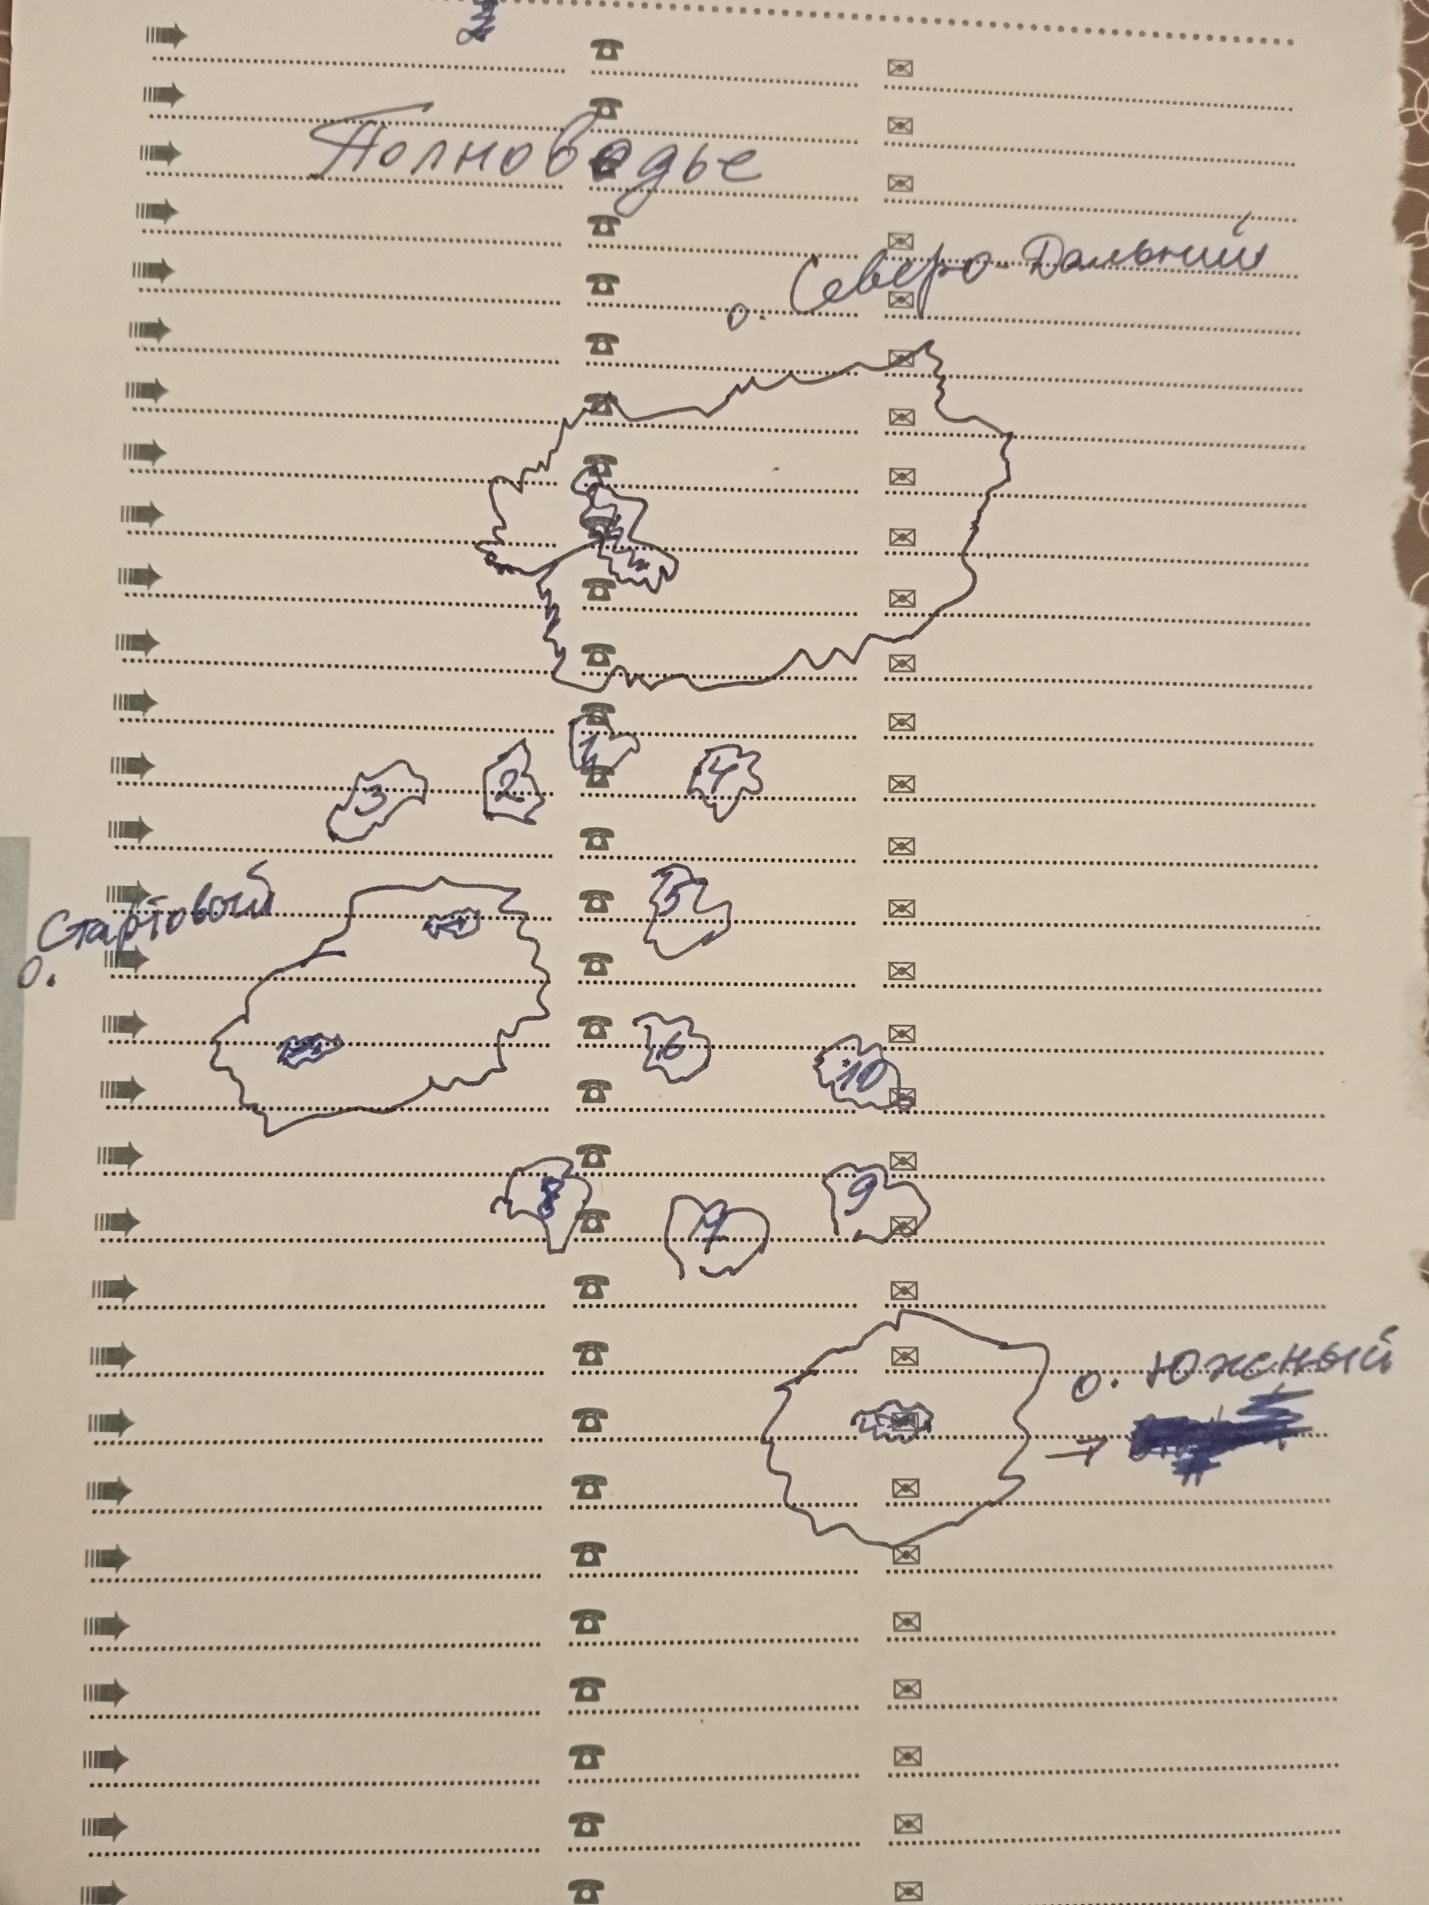 2
Полноводье
о. Северо-Дальний
1
2
4
3
5
о. Стартовый
6
10
8
9
7
о. Южный